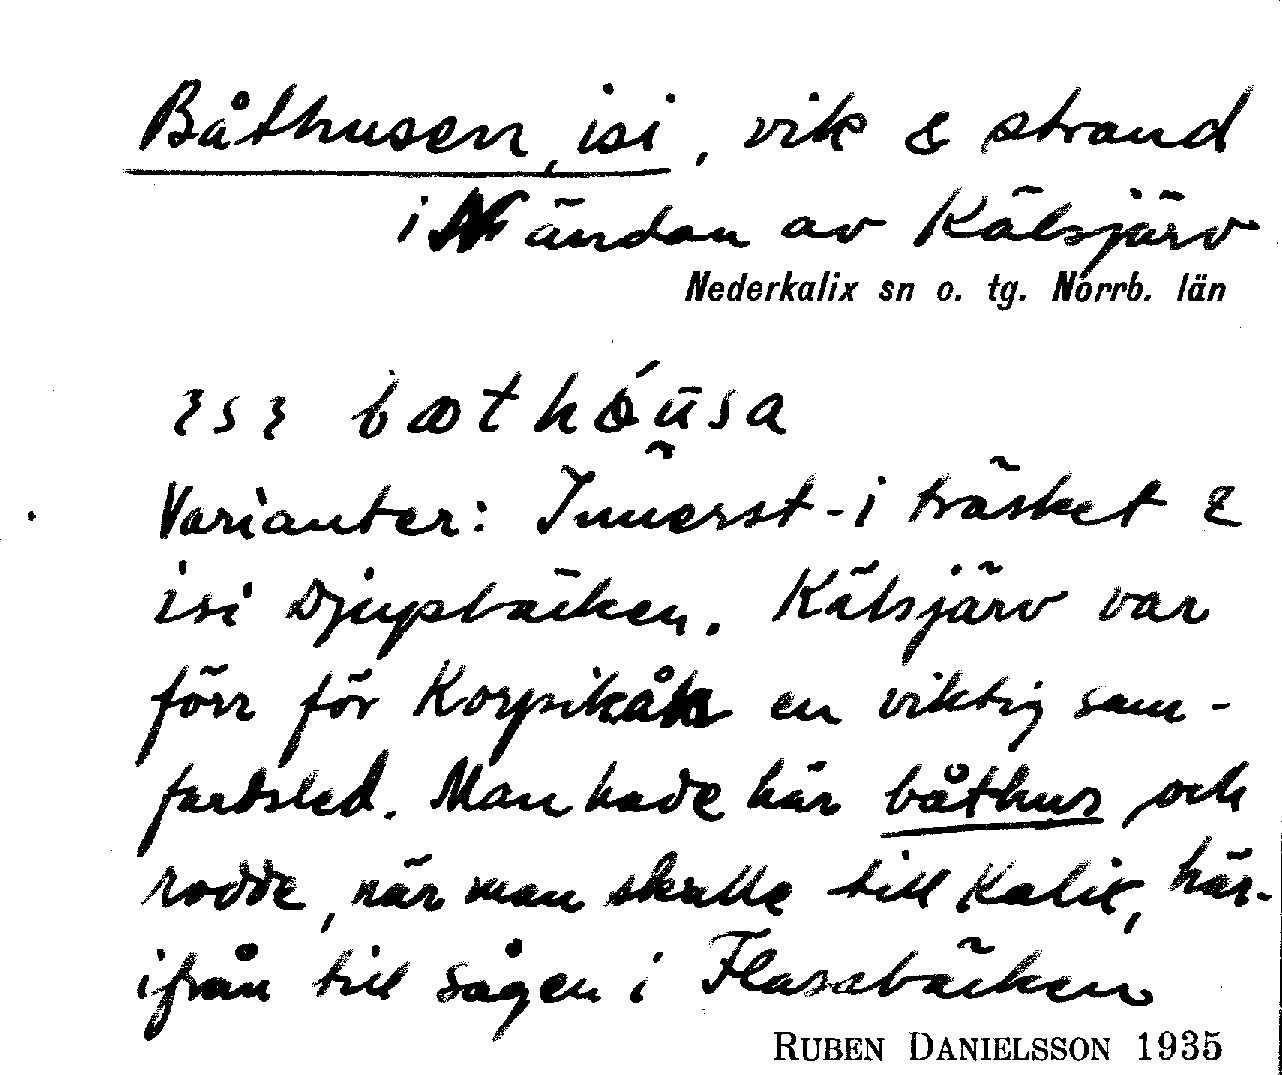 Båthusen, isi, vik & strand
i N ändan av Kälsjärv
Nederkalix sn o. tg. Norrb. län
Varianter: Innerst-i träsket &
isi Djupbäcken. Kälsjärv var
förr för Korpikån en viktig sam-
färdsled. Man hade här båthus och
rodde, när man skulle till Kalix, här-
ifrån till sågen i Flassbäcken
RUBEN DANIELSSON 1935